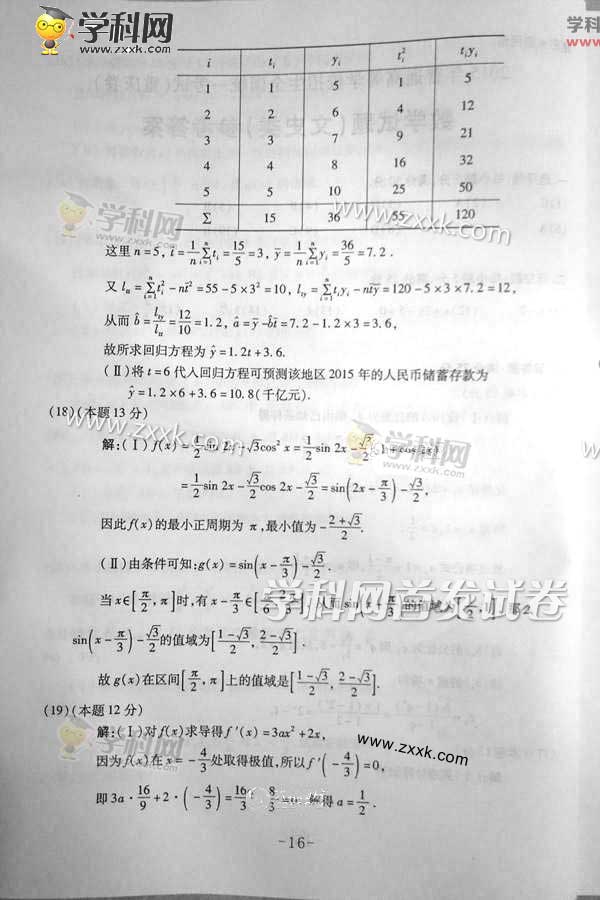 学科网
www.zxxk.com
学科
htt
i t_i y_i t_i² t_iy_i
1 1 5 1 5
2 2 6 4 12
3 3 7 9 21
4 4 8 16 32
5 5 10 25 50
Σ 15 36 55 120
学科网
www.zxxk.com
www.zxxk.com
这里 n=5, t̄=1/n Σ(i=1..n) t_i=15/5=3, ȳ=1/n Σ(i=1..n) y_i=36/5=7.2.
又 l_tt=Σ(i=1..n) t_i²-nt̄²=55-5×3²=10, l_ty=Σ(i=1..n) t_iy_i-nt̄ȳ=120-5×3×7.2=12,
从而 b̂=l_ty/l_tt=12/10=1.2, â=ȳ-b̂t̄=7.2-1.2×3=3.6,
故所求回归方程为 ŷ=1.2t+3.6.
(Ⅱ)将 t=6 代入回归方程可预测该地区 2015 年的人民币储蓄存款为
ŷ=1.2×6+3.6=10.8(千亿元).
www.zxxk.com
学科网
zxxk.com
(18)(本题13分)
解:(Ⅰ) f(x)=1/2 sin 2x-√3cos² x=1/2 sin 2x-√3/2(1+cos 2x)
=1/2 sin 2x-√3/2 cos 2x-√3/2=sin(2x-π/3)-√3/2,
因此 f(x) 的最小正周期为 π,最小值为 -(2+√3)/2.
(Ⅱ)由条件可知:g(x)=sin(x-π/3)-√3/2.
学科网首发试卷
当 x∈[π/2, π]时,有 x-π/3∈[π/6, 2π/3],从而 sin(x-π/3)的值域为[1/2, 1],那么
sin(x-π/3)-√3/2 的值域为[(1-√3)/2, (2-√3)/2].
故 g(x) 在区间[π/2, π]上的值域是[(1-√3)/2, (2-√3)/2].
(19)(本题12分)
学科网
www.zxxk.com
解:(Ⅰ)对 f(x) 求导得 f′(x)=3ax²+2x,
因为 f(x) 在 x=-4/3 处取得极值,所以 f′(-4/3)=0,
即 3a·16/9+2·(-4/3)=16a/3-8/3=0,解得 a=1/2.
-16-